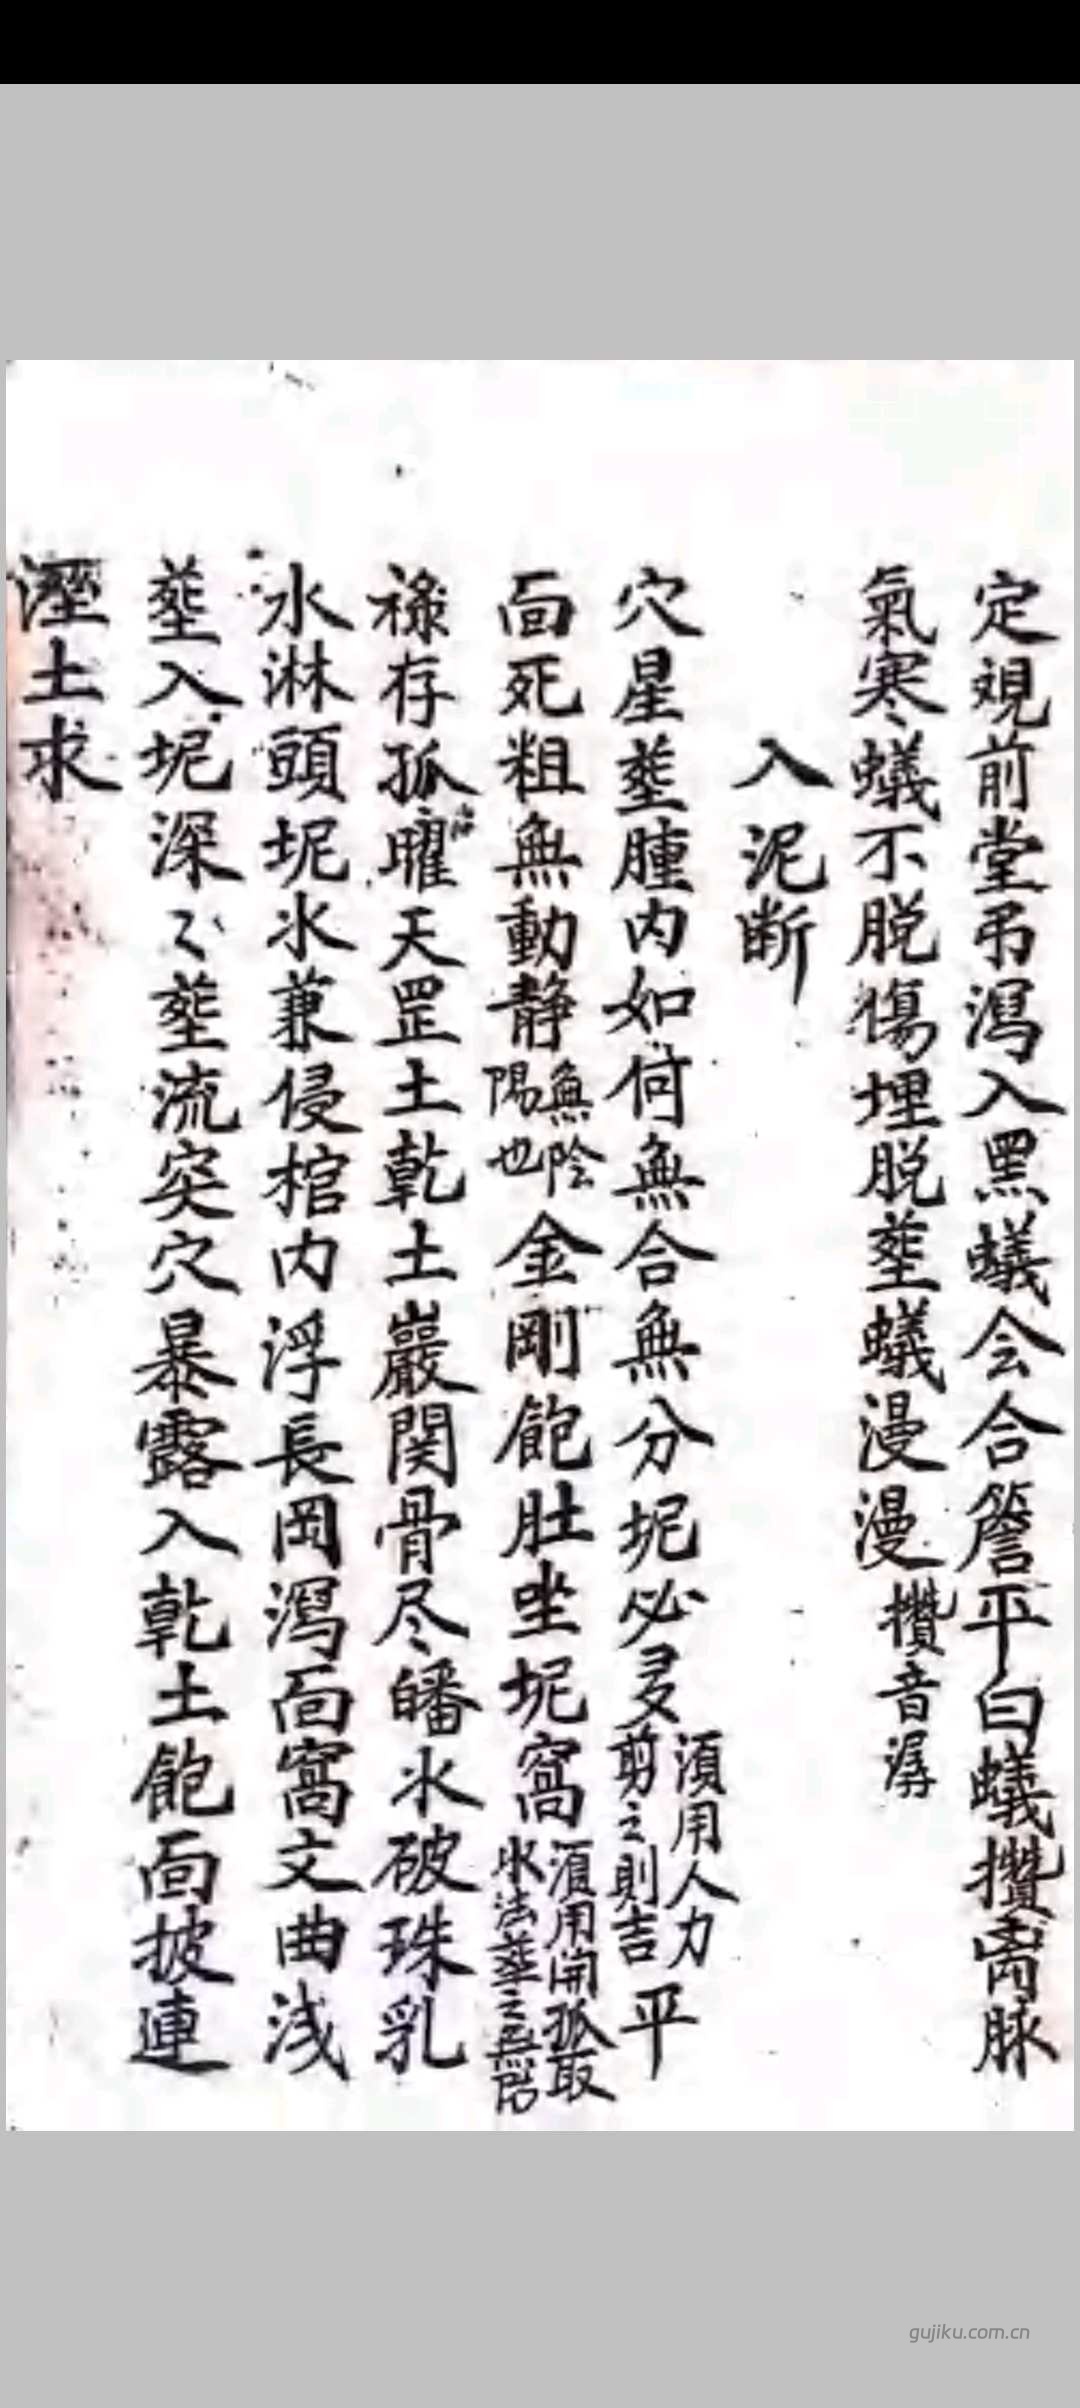 定覌前堂吊瀉入黑蟻会合簷平白蟻攢离脉
氣寒蟻不脱傷埋脱塟蟻漫漫攢音潺
入泥断
穴星塟腫内如何無合無分坭必多湏用人力剪之則吉平
面死粗無動静無陰陽也金剛飽肚坐坭窩湏用開孤取水法塟之無陷
祿存孤曜天罡土乾土巖関骨尽皤水破珠乳
水淋頭坭水兼侵棺内浮長岡瀉面窩文曲浅
塟入坭深〻塟流突穴暴露入乾土飽面披連
溼土求
gujiku.com.cn